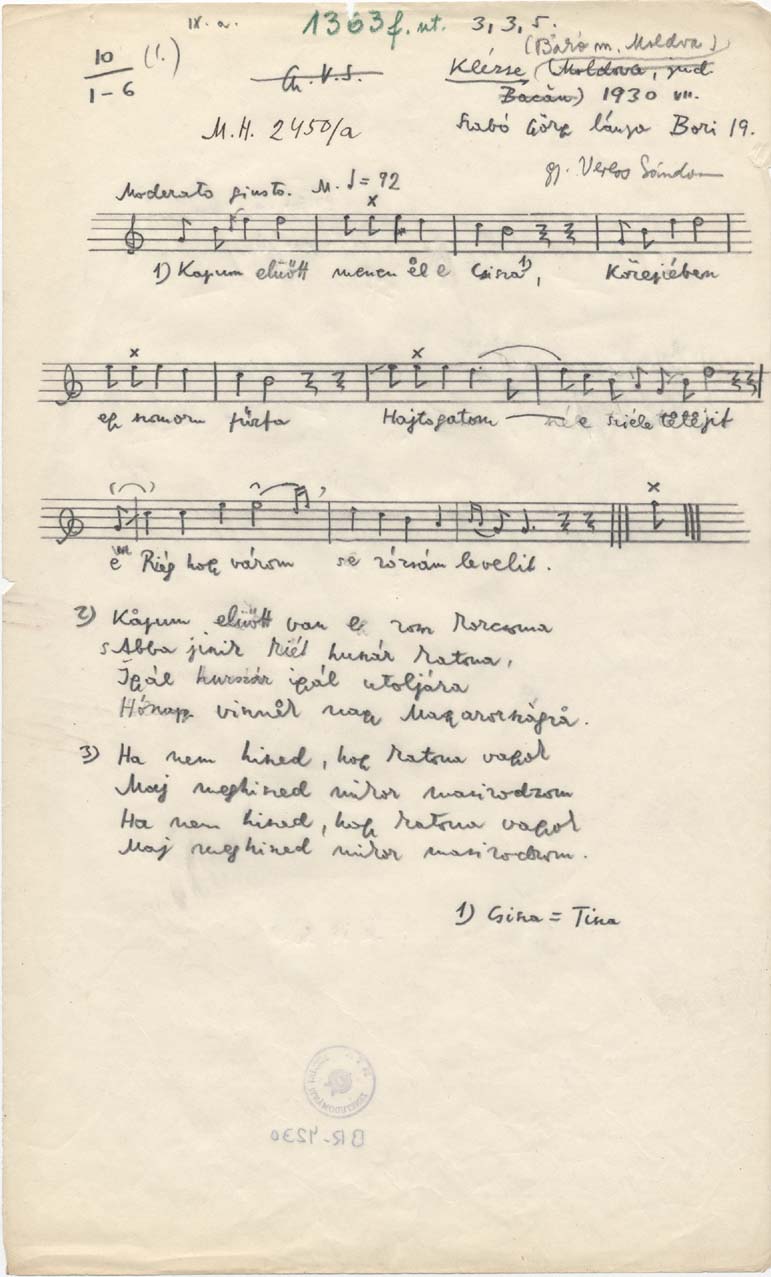 IX. a. 1363 f. ut. 3, 3, 5.
10 (1.)
1-6
(Bákó m. Moldva)
Klézse (Moldova, jud.
Bacău) 1930 VII.
M.H. 2450/a
Szabó Györg lánya Bori 19.
gy. Veress Sándor
Moderato giusto. M. ♩= 92
1) Kapum elüőtt menen el e Csiszå 1), Közejiében
eg szomorú fűzfa Hajtogatom széle tëtëjit
Riég hog várom rózsám levelit.
2) Kåpum elüőtt van e korcsoma
s Abba jinik két huszár katona,
Igál huszár igál utoljára
Hónap visznek nagy Magyarországrå.
3) Ha nem hiszed, hog katona vagyok
Maj meghiszed mikor masirodzom
Ha nem hiszed, hog katona vagyok
Maj meghiszed mikor masirodzom.
1) Csisza = Tisza
BR-4230